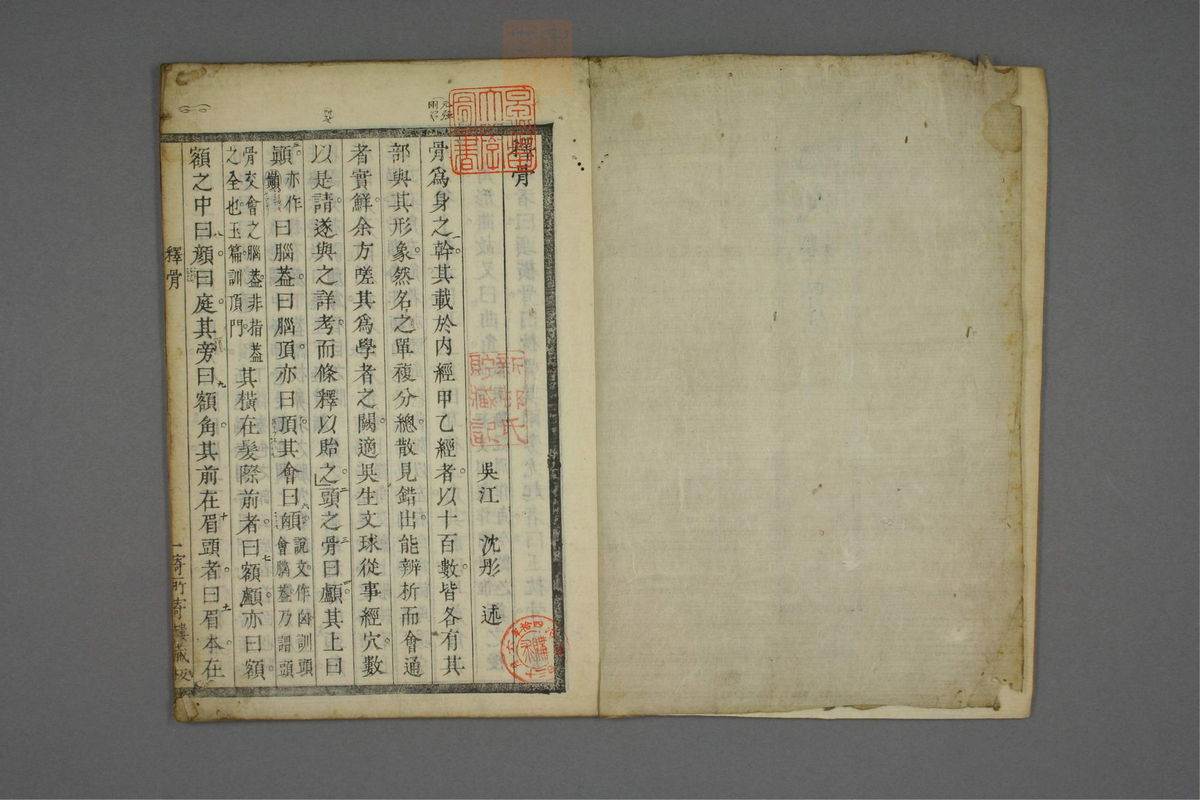 釋骨
吳江 沈彤 述
骨爲身之幹其載於内經甲乙經者以十百數皆各有其
部與其形象然名之單複分總散見錯出能辨析而會通
者實鮮余方嗟其爲學者之闕適吳生文球從事經穴數
以是請遂與之詳考而條釋以貽之頭之骨曰顱其上曰
顚亦作巓曰腦葢曰腦頂亦曰頂其會曰顖說文作囟訓頭會腦葢乃謂頭
骨交會之腦葢非指葢之全也玉篇訓頂門其橫在髮際前者曰額顱亦曰額
額之中曰顔曰庭其旁曰額角其前在眉頭者曰眉本在
釋骨
一
新邨氏
貯藏記